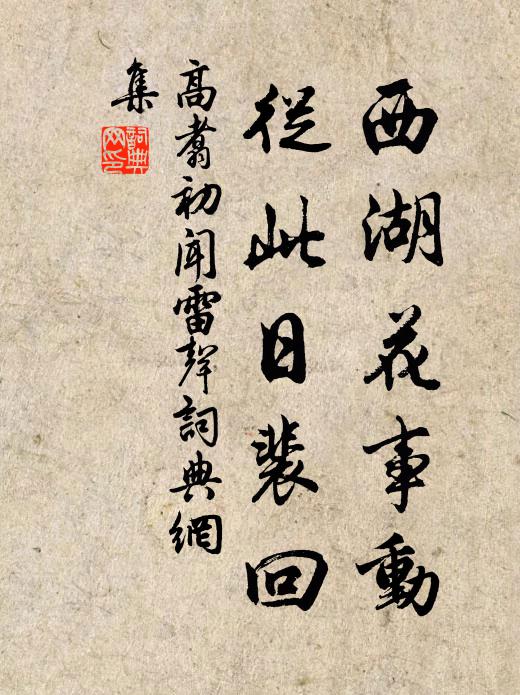 西湖花事動
從此日裴回
高翥初聞雷聲詞典網
集
詞典網印